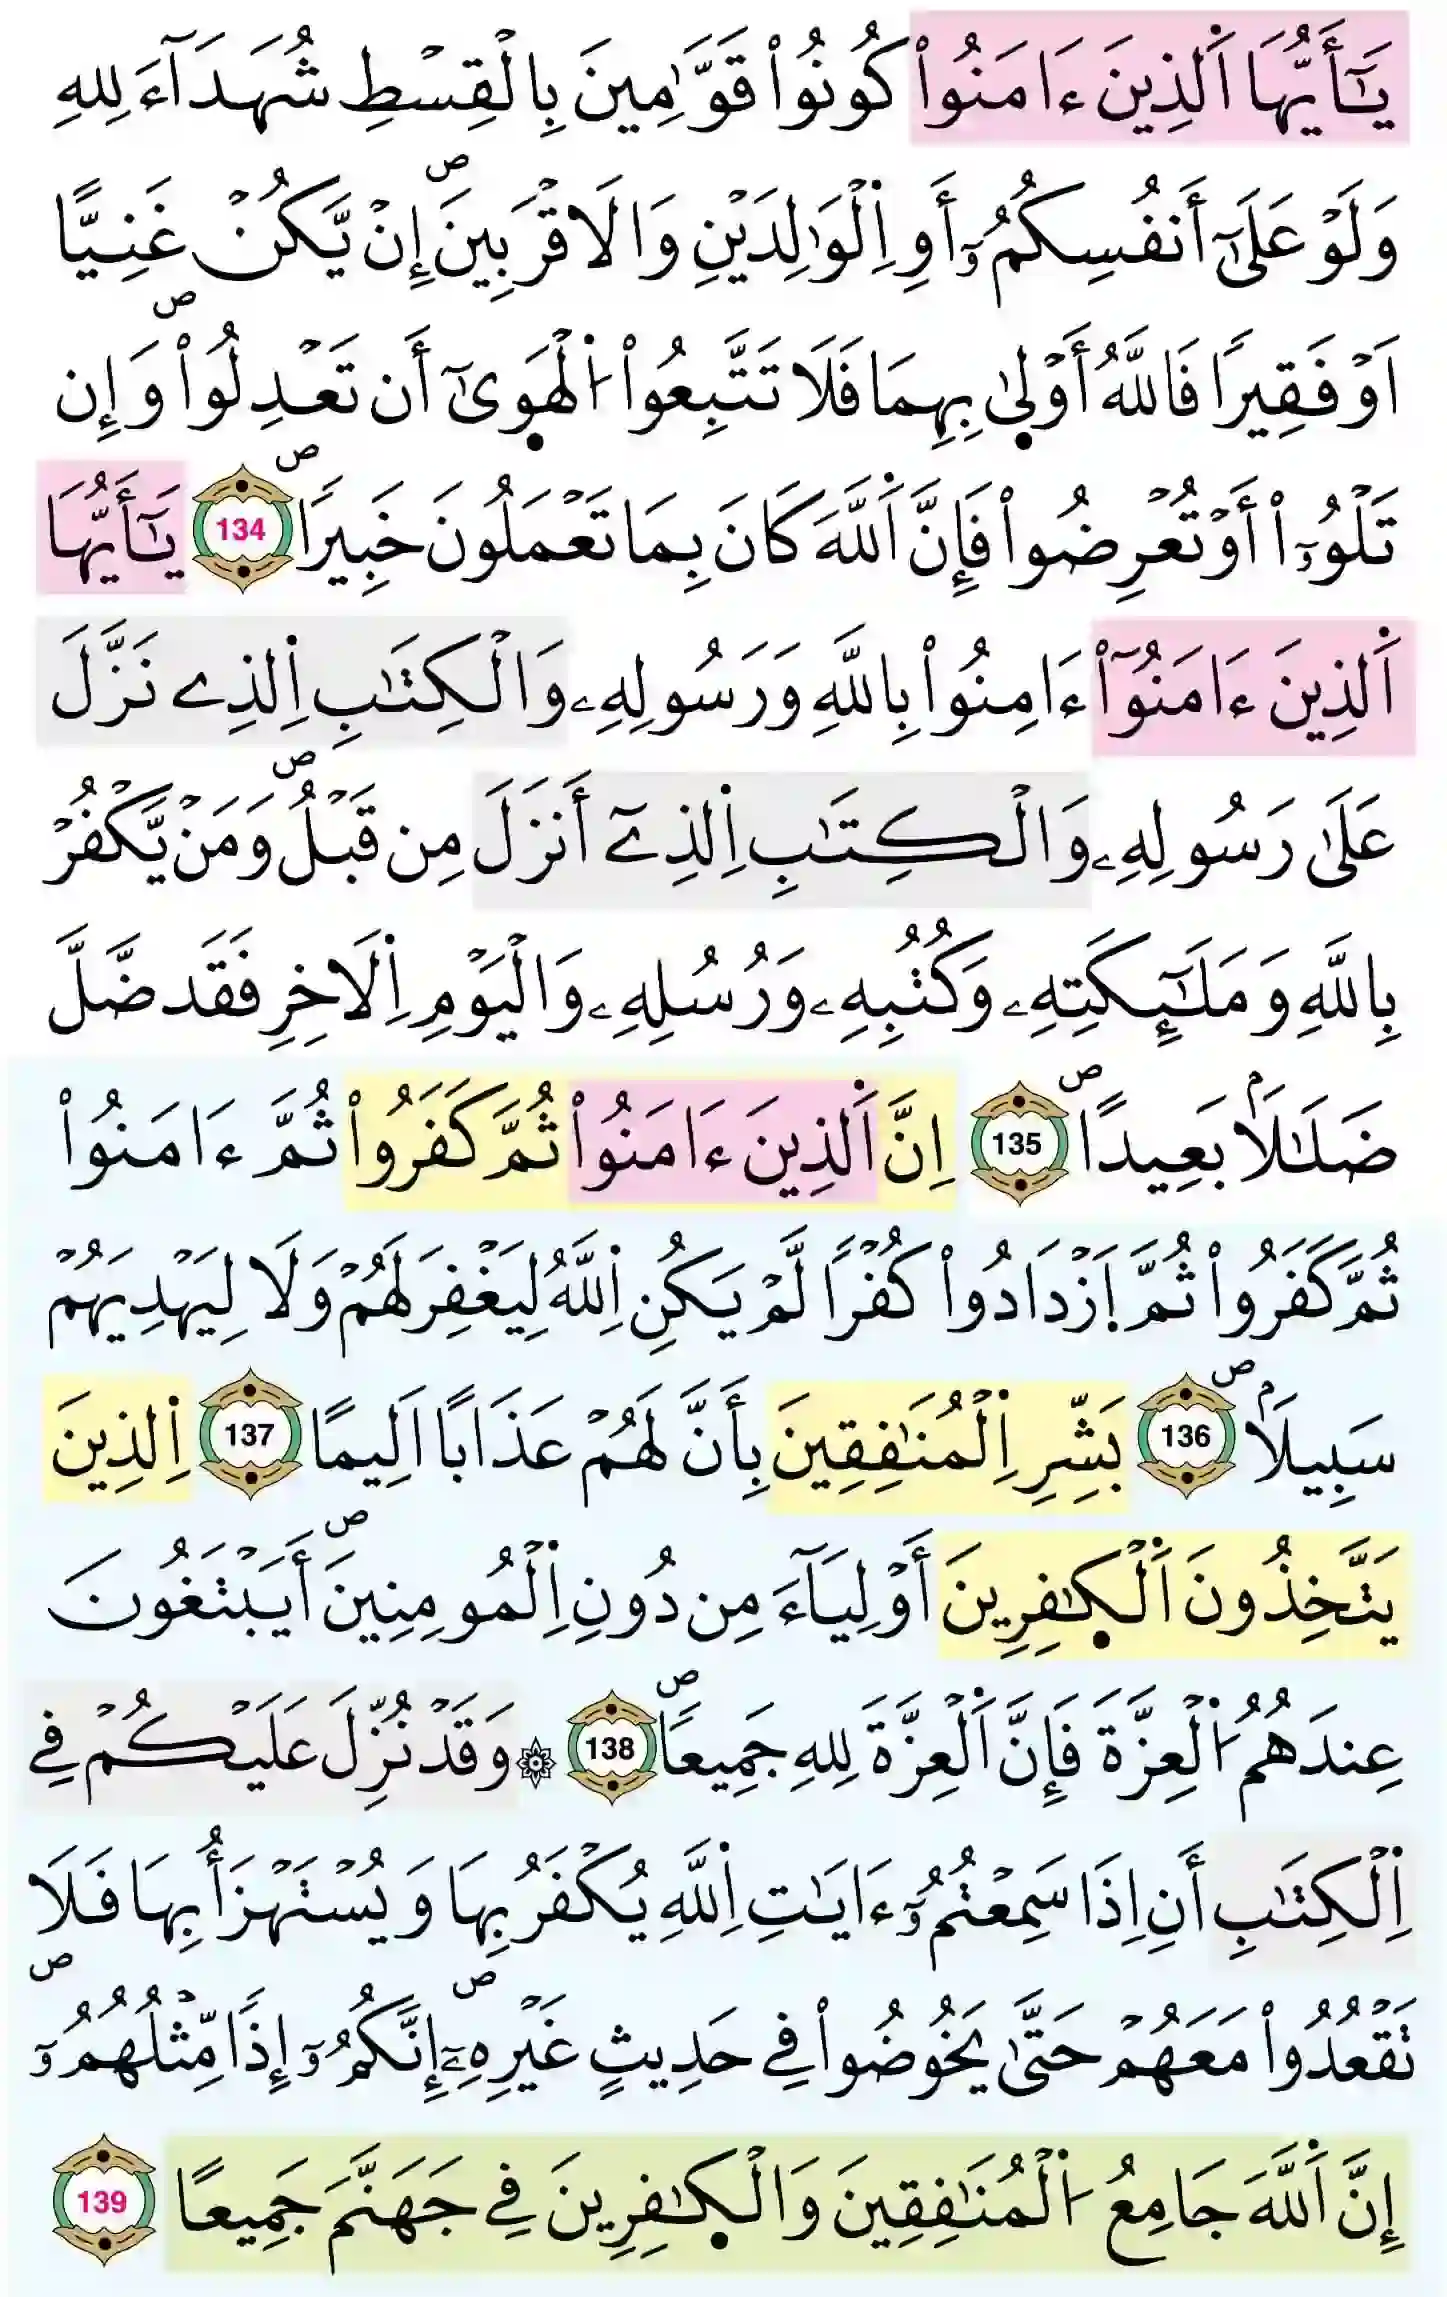 يَـٰٓأَيُّهَا اَ۬لذِينَ ءَامَنُواْ كُونُواْ قَوَّٰمِينَ بِالْقِسْطِ شُهَدَآءَ لِلهِ
وَلَوْ عَلَيٰٓ أَنفُسِكُمُۥٓ أَوِ اِ۬لْوَٰلِدَيْنِ وَالَاقْرَبِينَۖ إِنْ يَّكُنْ غَنِيًّا
اَوْ فَقِيرًا فَاللَّهُ أَوْلٜيٰ بِهِمَا فَلَا تَتَّبِعُواْ اُ۬لْهَوٜيٰٓ أَن تَعْدِلُواْۖ وَإِن
تَلْوُۥٓاْ أَوْ تُعْرِضُواْ فَإِنَّ اَ۬للَّهَ كَانَ بِمَا تَعْمَلُونَ خَبِيرًاۖ 134 يَـٰٓأَيُّهَا
اَ۬لذِينَ ءَامَنُوٓاْ ءَامِنُواْ بِاللَّهِ وَرَسُولِهِۦ وَالْكِتَٰبِ اِ۬لذِے نَزَّلَ
عَلَيٰ رَسُولِهِۦ وَالْكِتَٰبِ اِ۬لذِےٓ أَنزَلَ مِن قَبْلُۖ وَمَنْ يَّكْفُرْ
بِاللَّهِ وَمَلَٰٓئِكَتِهِۦ وَكُتُبِهِۦ وَرُسُلِهِۦ وَالْيَوْمِ اِ۬لَاخِرِ فَقَد ضَّلَّ
ضَلَٰلَاۢ بَعِيدًاۖ 135 اِنَّ اَ۬لذِينَ ءَامَنُواْ ثُمَّ كَفَرُواْ ثُمَّ ءَامَنُواْ
ثُمَّ كَفَرُواْ ثُمَّ اَ۪زْدَادُواْ كُفْرًا لَّمْ يَكُنِ اِ۬للَّهُ لِيَغْفِرَ لَهُمْ وَلَا لِيَهْدِيَهُمْ
سَبِيلَاۢۖ 136 بَشِّرِ اِ۬لْمُنَٰفِقِينَ بِأَنَّ لَهُمْ عَذَابًا اَلِيمًا 137 اِ۬لذِينَ
يَتَّخِذُونَ اَ۬لْكٰٜفِرِينَ أَوْلِيَآءَ مِن دُونِ اِ۬لْمُومِنِينَۖ أَيَبْتَغُونَ
عِندَهُمُ اُ۬لْعِزَّةَ فَإِنَّ اَ۬لْعِزَّةَ لِلهِ جَمِيعًاۖ 138 ۞ وَقَدْ نُزِّلَ عَلَيْكُمْ فِے
اِ۬لْكِتَٰبِ أَنِ اِذَا سَمِعْتُمُۥٓ ءَايَٰتِ اِ۬للَّهِ يُكْفَرُ بِهَا وَيُسْتَهْزَأُ بِهَا فَلَا
تَقْعُدُواْ مَعَهُمْ حَتَّيٰ يَخُوضُواْ فِے حَدِيثٍ غَيْرِهِۦٓۖ إِنَّكُمُۥٓ إِذًا مِّثْلُهُمُۥٓۖ
إِنَّ اَ۬للَّهَ جَامِعُ اُ۬لْمُنَٰفِقِينَ وَالْكٰٜفِرِينَ فِے جَهَنَّمَ جَمِيعًا 139